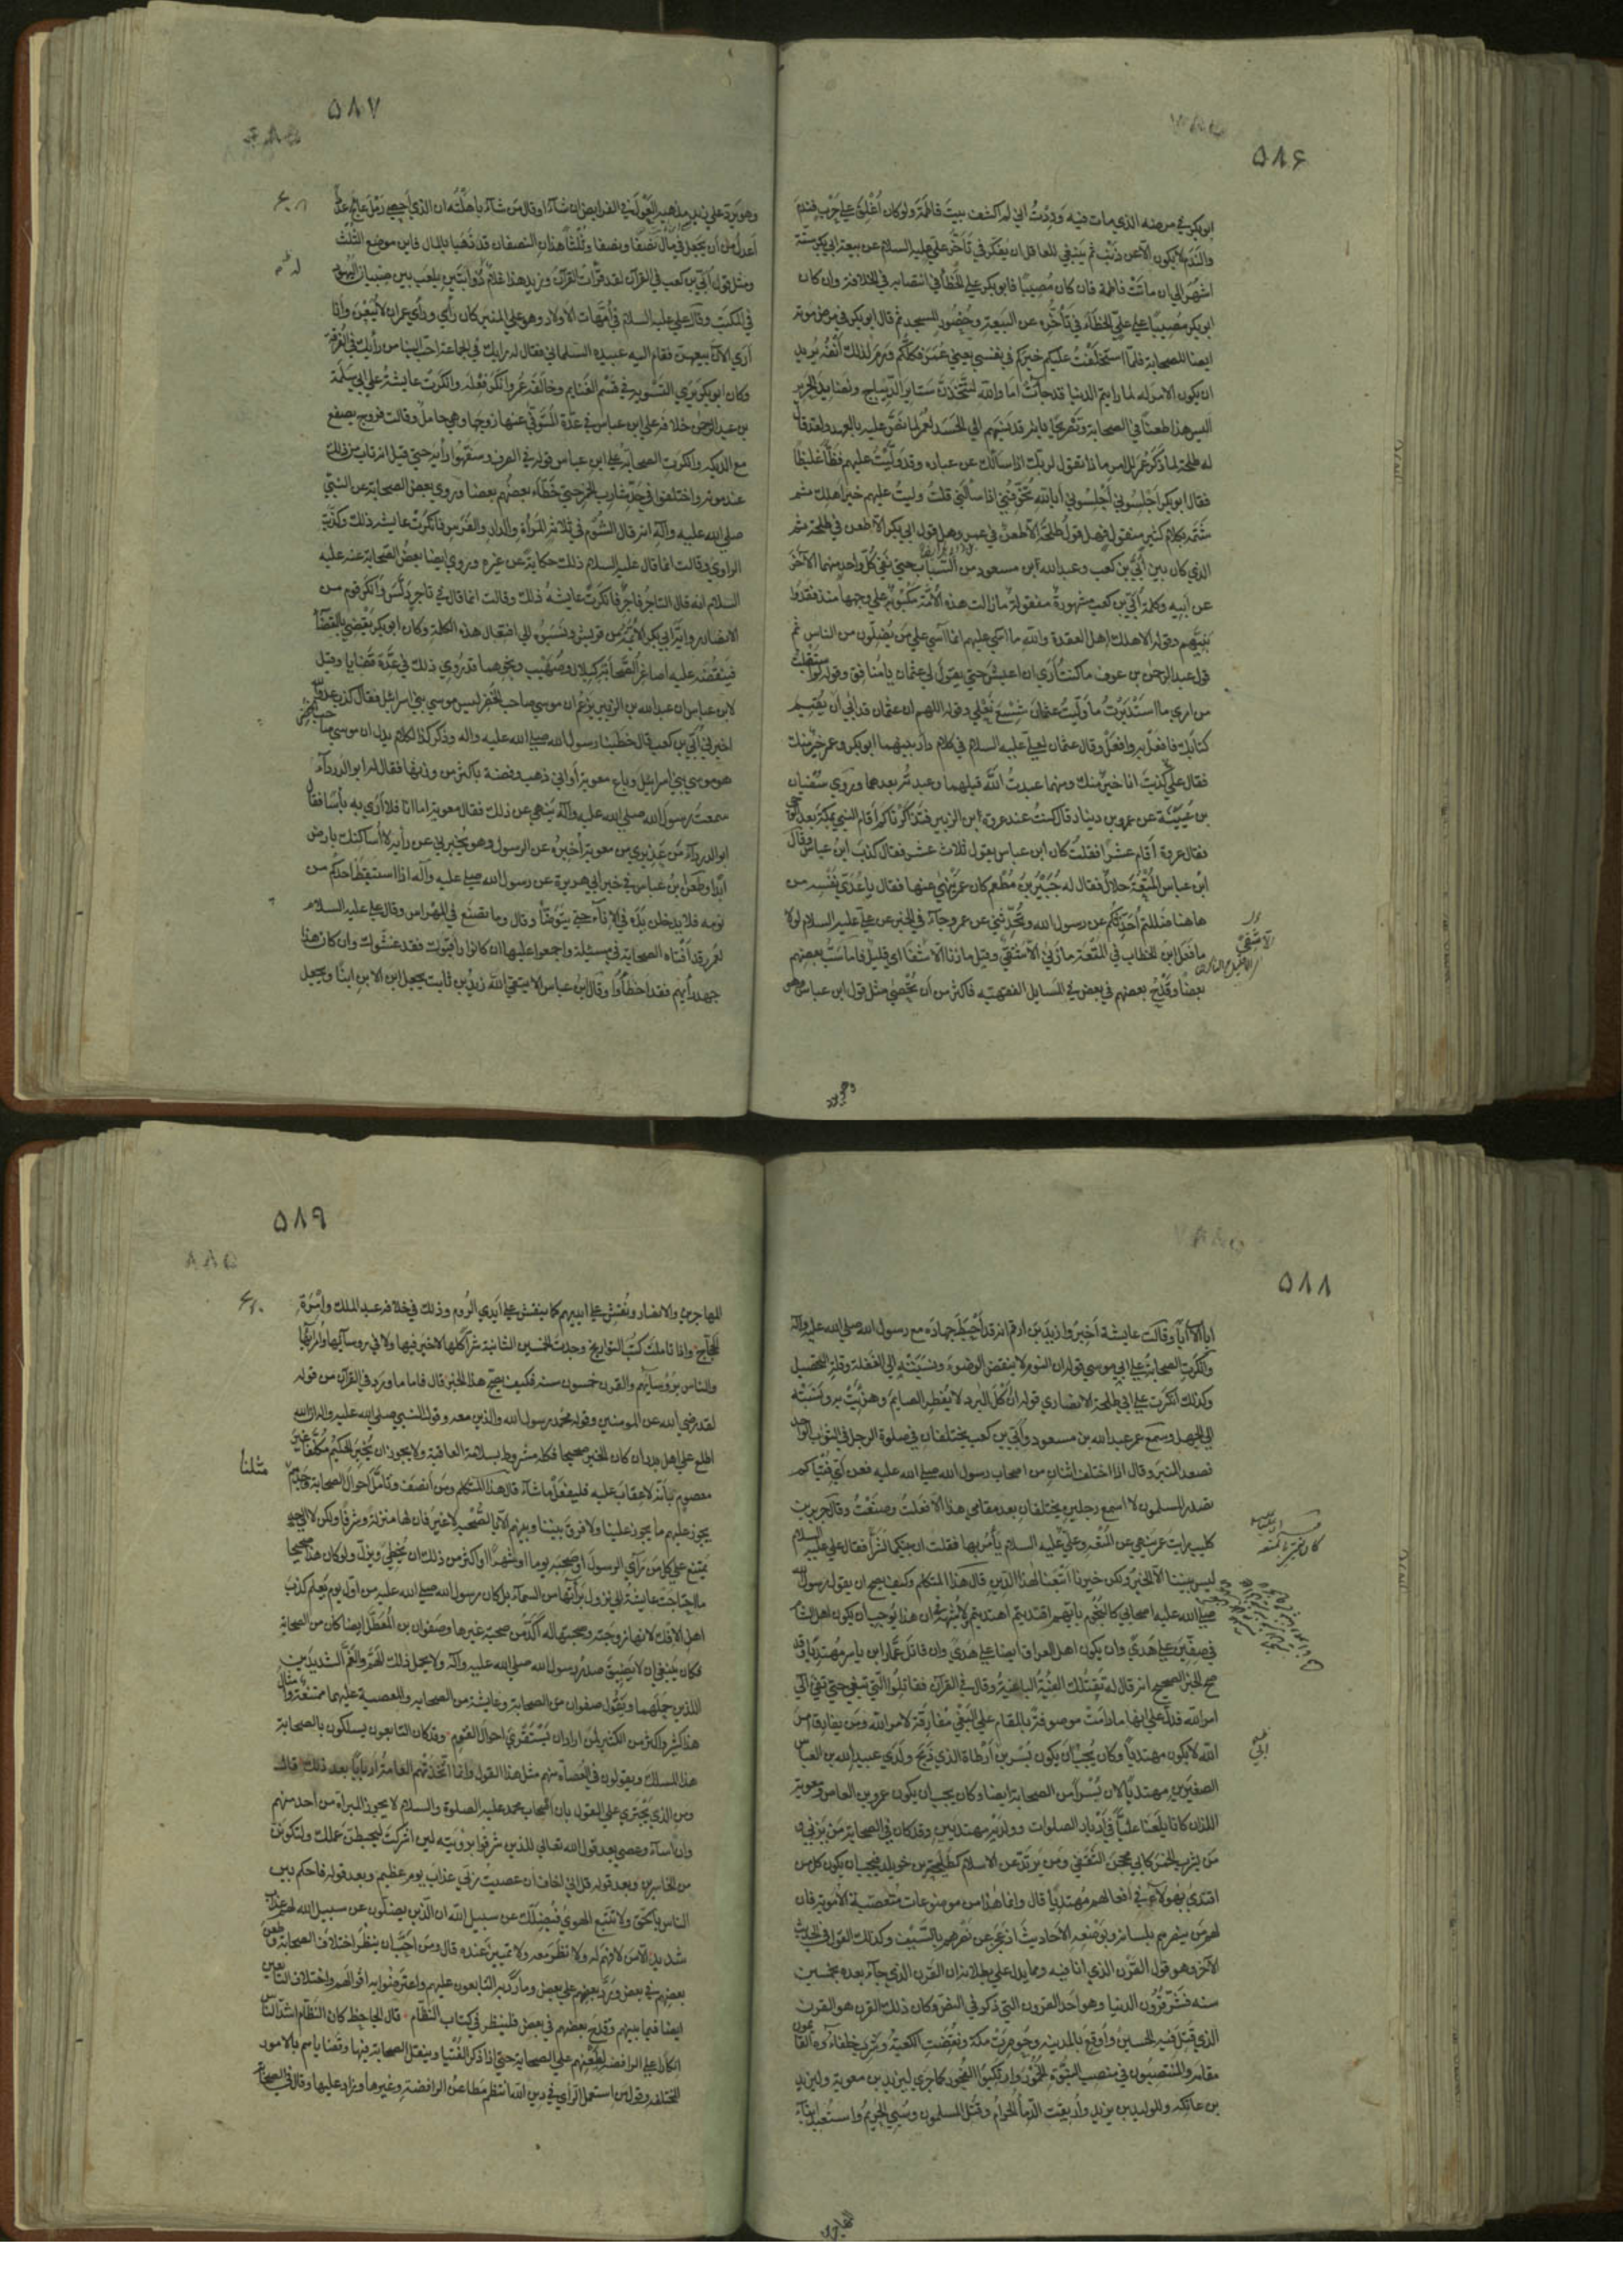 ۵۸۶
ابو بكر في مرضه الذي مات فيه وددت اني لم اكشف بيت فاطمة ولو كان اغلق على حرب فندم
والندم لا يكون الا عن ذنب ثم ينبغي للعاقل ان يفكر في تأخر علي عليه السلام عن بيعة ابي بكر ستة
اشهر الى ان ماتت فاطمة فان كان مصيبا فابو بكر على الخطأ في انتصابه في الخلافة وان كان
ابو بكر مصيبا فعلي على الخطاء في تأخره عن البيعة وحضور المسجد ثم قال ابو بكر في مرض موته
ايضا للصحابة فلما استخلفت عليكم خيركم في نفسي يعني عمر فكلكم ورم لذلك انفه يريد
ان يكون الامر له لما رايتم الدنيا قد جاءت اما والله لتتخذن ستاير الديباج ونضايد الحرير
اليس هذا طعنا في الصحابة وتصريحا بانه قد نسبهم الى الحسد لعمر لما نص عليه بالعهد ولقد قال
له طلحة لما ذكر عمر للامر ماذا تقول لربك اذا سألك عن عباده وقد وليت عليهم فظا غليظا
فقال ابو بكر اجلسوني اجلسوني أبالله تخوفني اذا سألني قلت وليت عليهم خير اهلك ثم
شتمه بكلام كثير منقول فهل قول طلحة الا طعن في عمر وهل قول ابي بكر الا طعن في طلحة ثم
الذي كان بين ابي بن كعب وعبد الله ابن مسعود من السباب حتى نفى كل واحد منهما الآخر
عن ابيه وكلمة ابي بن كعب مشهورة منقولة ما زالت هذه الامة مكبوبة على وجهها منذ فقدوا
نبيهم وقوله الا هلك اهل العقدة والله ما آسي عليهم انما آسي على من يضلون من الناس ثم
قول عبد الرحمن بن عوف ما كنت أرى ان اعيش حتى يقول لي عثمان يا منافق وقوله لو استقبلت
من امري ما استدبرت ما وليت عثمان شسع نعلي وقوله اللهم ان عثمان قد ابى ان يقيم
كتابك فافعل به وافعل وقال عثمان لعلي عليه السلام في كلام دار بينهما ابو بكر وعمر خير منك
فقال علي كذبت انا خير منك ومنهما عبدت الله قبلهما وعبدته بعدهما وروى سفيان
بن عيينة عن عمرو بن دينار قال كنت عند عروة ابن الزبير فتذاكرنا كم اقام النبي بمكة بعد الوحي
فقال عروة أقام عشرا فقلت كان ابن عباس يقول ثلاث عشر فقال كذب ابن عباس وقال
ابن عباس المتعة حلال فقال له جبير بن مطعم كان عمر ينهى عنها فقال يا عدي نفسه من
هاهنا ضللتم أحدثكم عن رسول الله وتحدثني عن عمر وجاء في الخبر عن علي عليه السلام لولا
ما فعل ابن الخطاب في المتعة ما زنى الا شقي وقيل ما زنا الا شفا اي قليل فاما سب بعضهم
بعضا وقدح بعضهم في بعض في المسايل الفقهيه فاكثر من أن يحصى مثل قول ابن عباس وهو
وهو يرد
۵۸۷
وهو يرد على زيد مذهبه العول في الفرايض ان شاء او قال من شاء باهلته ان الذي أحصى رمل عالج عددا
أعدل من أن يجعل في مال نصفا ونصفا وثلثا هذان النصفان قد ذهبا بالمال فاين موضع الثلث
ومثل قول ابي بن كعب في القرآن لقد قرأت القرآن وزيد هذا غلام ذو ذؤابتين يلعب بين صبيان اليهود
في المكتب وقال علي عليه السلام في امهات الاولاد وهو على المنبر كان رأي ورأي عمر ان لا يبعن وأنا
أرى الآن بيعهن فقام اليه عبيده السلماني فقال له رايك في الجماعة احب الينا من رأيك في الفرقة
وكان ابو بكر يرى التسوية في قسم الغنايم وخالفه عمر وانكر فعله وانكرت عايشة على ابي سلمة
بن عبد الرحمن خلافه على ابن عباس في عدة المتوفى عنها زوجها وهي حامل وقالت فروج يصقع
مع الديكه وانكرت الصحابة على ابن عباس قوله في الصرف وسفهوا رأيه حتى قيل انه تاب من ذلك
عند موته واختلفوا في حد شارب الخمر حتى خطاء بعضهم بعضا وروى بعض الصحابة عن النبي
صلى الله عليه وآله انه قال الشوم في ثلاثة المرأة والدار والفرس فانكرت عايشه ذلك وكذبت
الراوي وقالت انما قال عليه السلام ذلك حكاية عن غيره وروى ايضا بعض الصحابة عنه عليه
السلام انه قال التاجر فاجر فانكرت عايشة ذلك وقالت انما قال في تاجر دلس وانكر قوم من
الانصار رواية ابي بكر الائمة من قريش ونسبوه الى افتعال هذه الكلمة وكان ابو بكر يقضي بالقضاء
فينقضه عليه اصاغر الصحابة كبلال وصهيب ونحوهما قد روي ذلك في عدة قضايا وقيل
لابن عباس ان عبد الله بن الزبير يزعم ان موسى صاحب الخضر ليس موسى بني اسرائيل فقال كذب عدو الله
اخبرني ابي بن كعب قال خطبنا رسول الله صلى الله عليه واله وذكر كذا لكلام يدل ان موسى صاحب الخضر
هو موسى بني اسرائيل وباع معوية أواني ذهب وفضة باكثر من وزنها فقال له ابو الدرداء
سمعت رسول الله صلى الله عليه وآله ينهى عن ذلك فقال معوية اما انا فلا أرى به بأسا فقال
ابو الدرداء من عذيري من معوية أخبره عن الرسول وهو يخبرني عن رأيه لا أساكنك بارض
ابدا وطعن ابن عباس في خبر ابي هريرة عن رسول الله صلى عليه وآله اذا استيقظ احدكم من
نومه فلا يدخلن يده في الإناء حتى يتوضأ وقال وما نصنع في المهراس وقال علي عليه السلام
لعمر وقد أفتاه الصحابة في مسئلة واجمعوا عليها ان كانوا راقبوك فقد غشوك وان كان هذا
جهد رأيهم فقد اخطأوا وقال ابن عباس الا يتقي الله زيد بن ثابت يجعل ابن الابن ابنا ويجعل
۵۸۸
اب الاب أبا وقالت عايشة أخبروا زيد بن ارقم انه قد أحبط جهاده مع رسول الله صلى الله عليه وآله
وانكرت الصحابة على ابي موسى قوله ان النوم لا ينقض الوضوء ونسبته الى الغفلة وقلة التحصيل
وكذلك انكرت على ابي طلحة الانصاري قوله ان أكل البرد لا يفطر الصايم وهزئت به ونسبته
الى الجهل وسمع عمر عبد الله بن مسعود وأبي بن كعب يختلفان في صلوة الرجل في الثوب الواحد
فصعد المنبر وقال اذا اختلف اثنان من اصحاب رسول الله صلى الله عليه فعن اي فتياكم
يصدر المسلمون لا اسمع رجلين يختلفان بعد مقامي هذا الا فعلت وصنعت وقال جرير بن
كليب رايت عمر ينهى عن المتعة وعلي عليه السلام يأمر بها فقلت ان بينكما لشرا فقال علي عليه السلام
ليس بيننا الا الخير ولكن خيرنا أتبعنا لهذا الدين قال هذا المتكلم وكيف يصح ان يقول رسول الله
صلى الله عليه اصحابي كالنجوم بأيهم اقتديتم اهتديتم لا شبهة ان هذا يوجب ان يكون اهل الشام
في صفين على هدى وان يكون اهل العراق ايضا على هدى وان قاتل عمار ابن ياسر مهتديا وقد
صح الخبر الصحيح انه قال له تقتلك الفئة الباغية وقال في القرآن فقاتلوا التي تبغي حتى تفئ الى
امر الله فدل على انها ما دامت موصوفة بالمقام على البغي مفارقة لامر الله ومن يفارق امر
الله لا يكون مهتديا وكان يجب ان يكون بسر بن أرطاة الذي ذبح ولدي عبيد الله بن العباس
الصغيرين مهتديا لان بسرا من الصحابة ايضا وكان يجب ان يكون عمرو بن العاص ومعوية
اللذان كانا يلعنا عليا في أدبار الصلوات وولديه مهتديين وقد كان في الصحابة من يزني و
من يشرب الخمر كابي محجن الثقفي ومن يرتد عن الاسلام كطليحة بن خويلد فيجب ان يكون كل من
اقتدى بهؤلاء في افعالهم مهتديا قال وانما هذا من موضوعات متعصبة الأموية فان
لهم من ينصرهم بلسانه وبوضعه الأحاديث اذ عجز عن نصرهم بالسيف وكذلك القول في الحديث
الآخر وهو قول القرن الذي انا فيه ومما يدل على بطلانه ان القرن الذي جاء بعده بخمسين
سنه فشر قرون الدنيا وهو احد القرون التي ذكر في النص وكان ذلك القرن هو القرن
الذي قتل فيه الحسين وأوقع بالمدينه وحوصرت مكة ونقضت الكعبة وشرب خلفاؤه والقائمون
مقامه والمنتصبون في منصب النبوة الخمور وارتكبوا الفجور كما جرى ليزيد بن معوية وليزيد
بن عاتكه وللوليد بن يزيد وأريقت الدماء الحرام وقتل المسلمون وسبي الحريم واستعبد ابناء
المهاجرين
۵۸۹
المهاجرين والانصار ونقش على ايديهم كما ينقش على أيدي الروم وذلك في خلافه عبد الملك وامرة
الحجاج واذا تاملت كتب التواريخ وجدت الخمسين الثانية شرا كلها لا خير فيها ولا في روسائها وامرائها
والناس برؤسائهم والقرن خمسون سنه فكيف يصح هذا الخبر قال فاما ما ورد في القرآن من قوله
لقد رضي الله عن المومنين وقوله محمد رسول الله والذين معه وقول النبي صلى الله عليه واله ان الله
اطلع على اهل بدر ان كان الخبر صحيحا فكله مشروط بسلامة العاقبة ولا يجوز ان يخبر الحكيم مكلفا غير
معصوم بأنه لا عقاب عليه فليفعل ما شاء قال هذا المتكلم ومن أنصف وتامل احوال الصحابة وجدهم مثلنا
يجوز عليهم ما يجوز علينا ولا فرق بيننا وبينهم الا بالصحبه لا غير فان لها منزلة وشرفا ولكن لا الى حد
يمتنع على كل من رآى الرسول أو صحبه يوما او شهرا او اكثر من ذلك ان يخطئ ويزل ولو كان هذا صحيحا
ما احتاجت عايشة الى نزول براءتها من السماء بل كان رسول الله صلى الله عليه من اول يوم يعلم كذب
اهل الافك لانها زوجته وصحبتها له آكد من صحبة غيرها وصفوان بن المعطل ايضا كان من الصحابة
فكان ينبغي ان لا يضيق صدر رسول الله صلى الله عليه وآله ولا يحمل ذلك الهم والغم الشديدين
اللذين حملهما ويقول صفوان من الصحابة وعايشة من الصحابه والمعصية عليهما ممتنعة وامثال
هذا كثير واكثر من الكثير لمن اراد ان يستقرئ احوال القوم وقد كان التابعون يسلكون بالصحابة
هذا المسلك ويقولون في العصاة منهم مثل هذا القول وانما اتخذتهم العامة أربابا بعد ذلك قال
ومن الذي يجترئ على القول بان اصحاب محمد عليه الصلوة والسلام لا يجوز البراءة من احد منهم
وان اساء وعصى بعد قول الله تعالى للذين شرفوا برؤيته لين اشركت ليحبطن عملك ولتكونن
من الخاسرين وبعد قوله قل اني اخاف ان عصيت ربي عذاب يوم عظيم وبعد قوله فاحكم بين
الناس بالحق ولا تتبع الهوى فيضلك عن سبيل الله ان الذين يضلون عن سبيل الله لهم عذاب
شديد الا من لا فهم له ولا نظر معه ولا تمييز عنده قال ومن احب ان ينظر اختلاف الصحابة وطعن
بعضهم في بعض ورد بعضهم على بعض وما رد به التابعون عليهم واعترضوا به اقوالهم واختلاف التابعين
ايضا فيما بينهم وقدح بعضهم في بعض فلينظر في كتاب النظام قال الجاحظ كان النظام اشد الناس
انكارا على الرافضه لطعنهم على الصحابة حتى اذا ذكر الفتيا وتنقل الصحابة فيها وقضاياهم بالامور
المختلفه وقول من استعمل الرأي في دين الله انتظم مطاعن الرافضة وغيرها وزاد عليها وقال في الصحابة